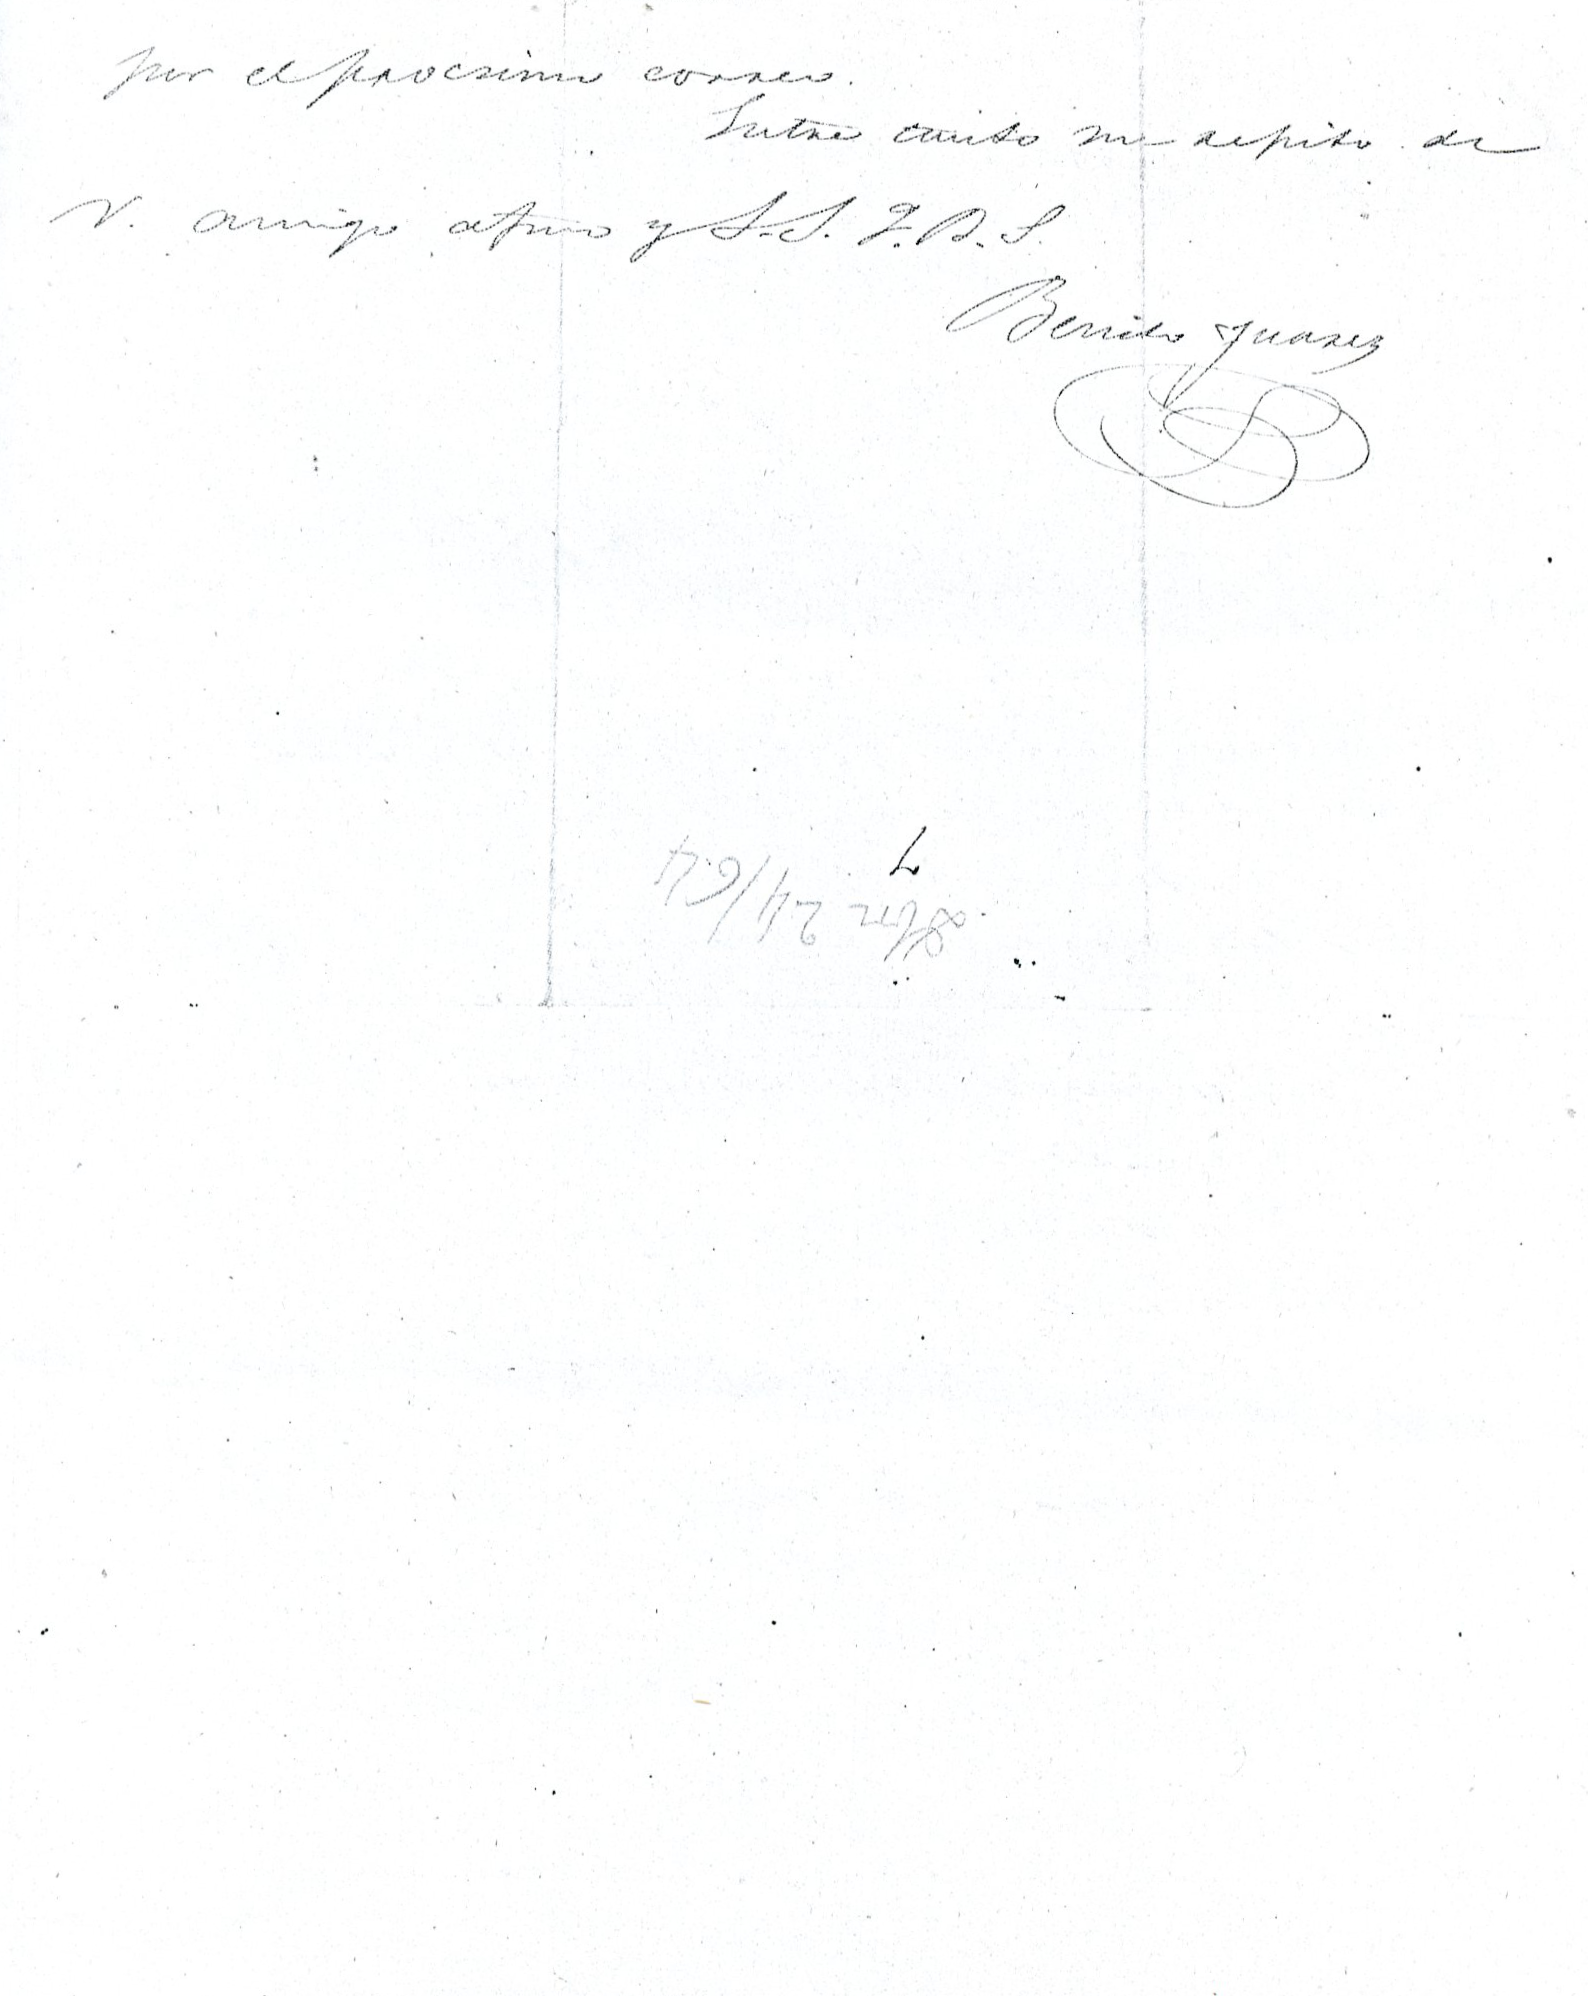 por el procsimo correo.
Entre tanto me repito de
V. amigo afmo y S. S. Q. B. S.
Benito Juarez
24/64